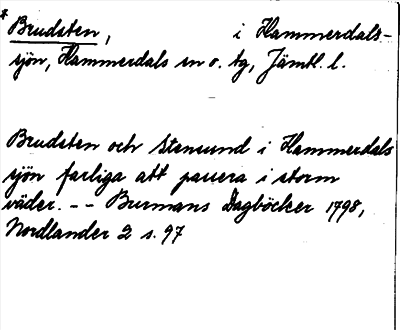 * Brudsten, i Hammerdals-
sjön, Hammerdals sn o. tg, Jämtl. l.
Brudsten och Stensund i Hammerdals
sjön farliga att passera i storm
väder. -- Burmans Dagböcker 1798,
Nordlander 2 s. 97